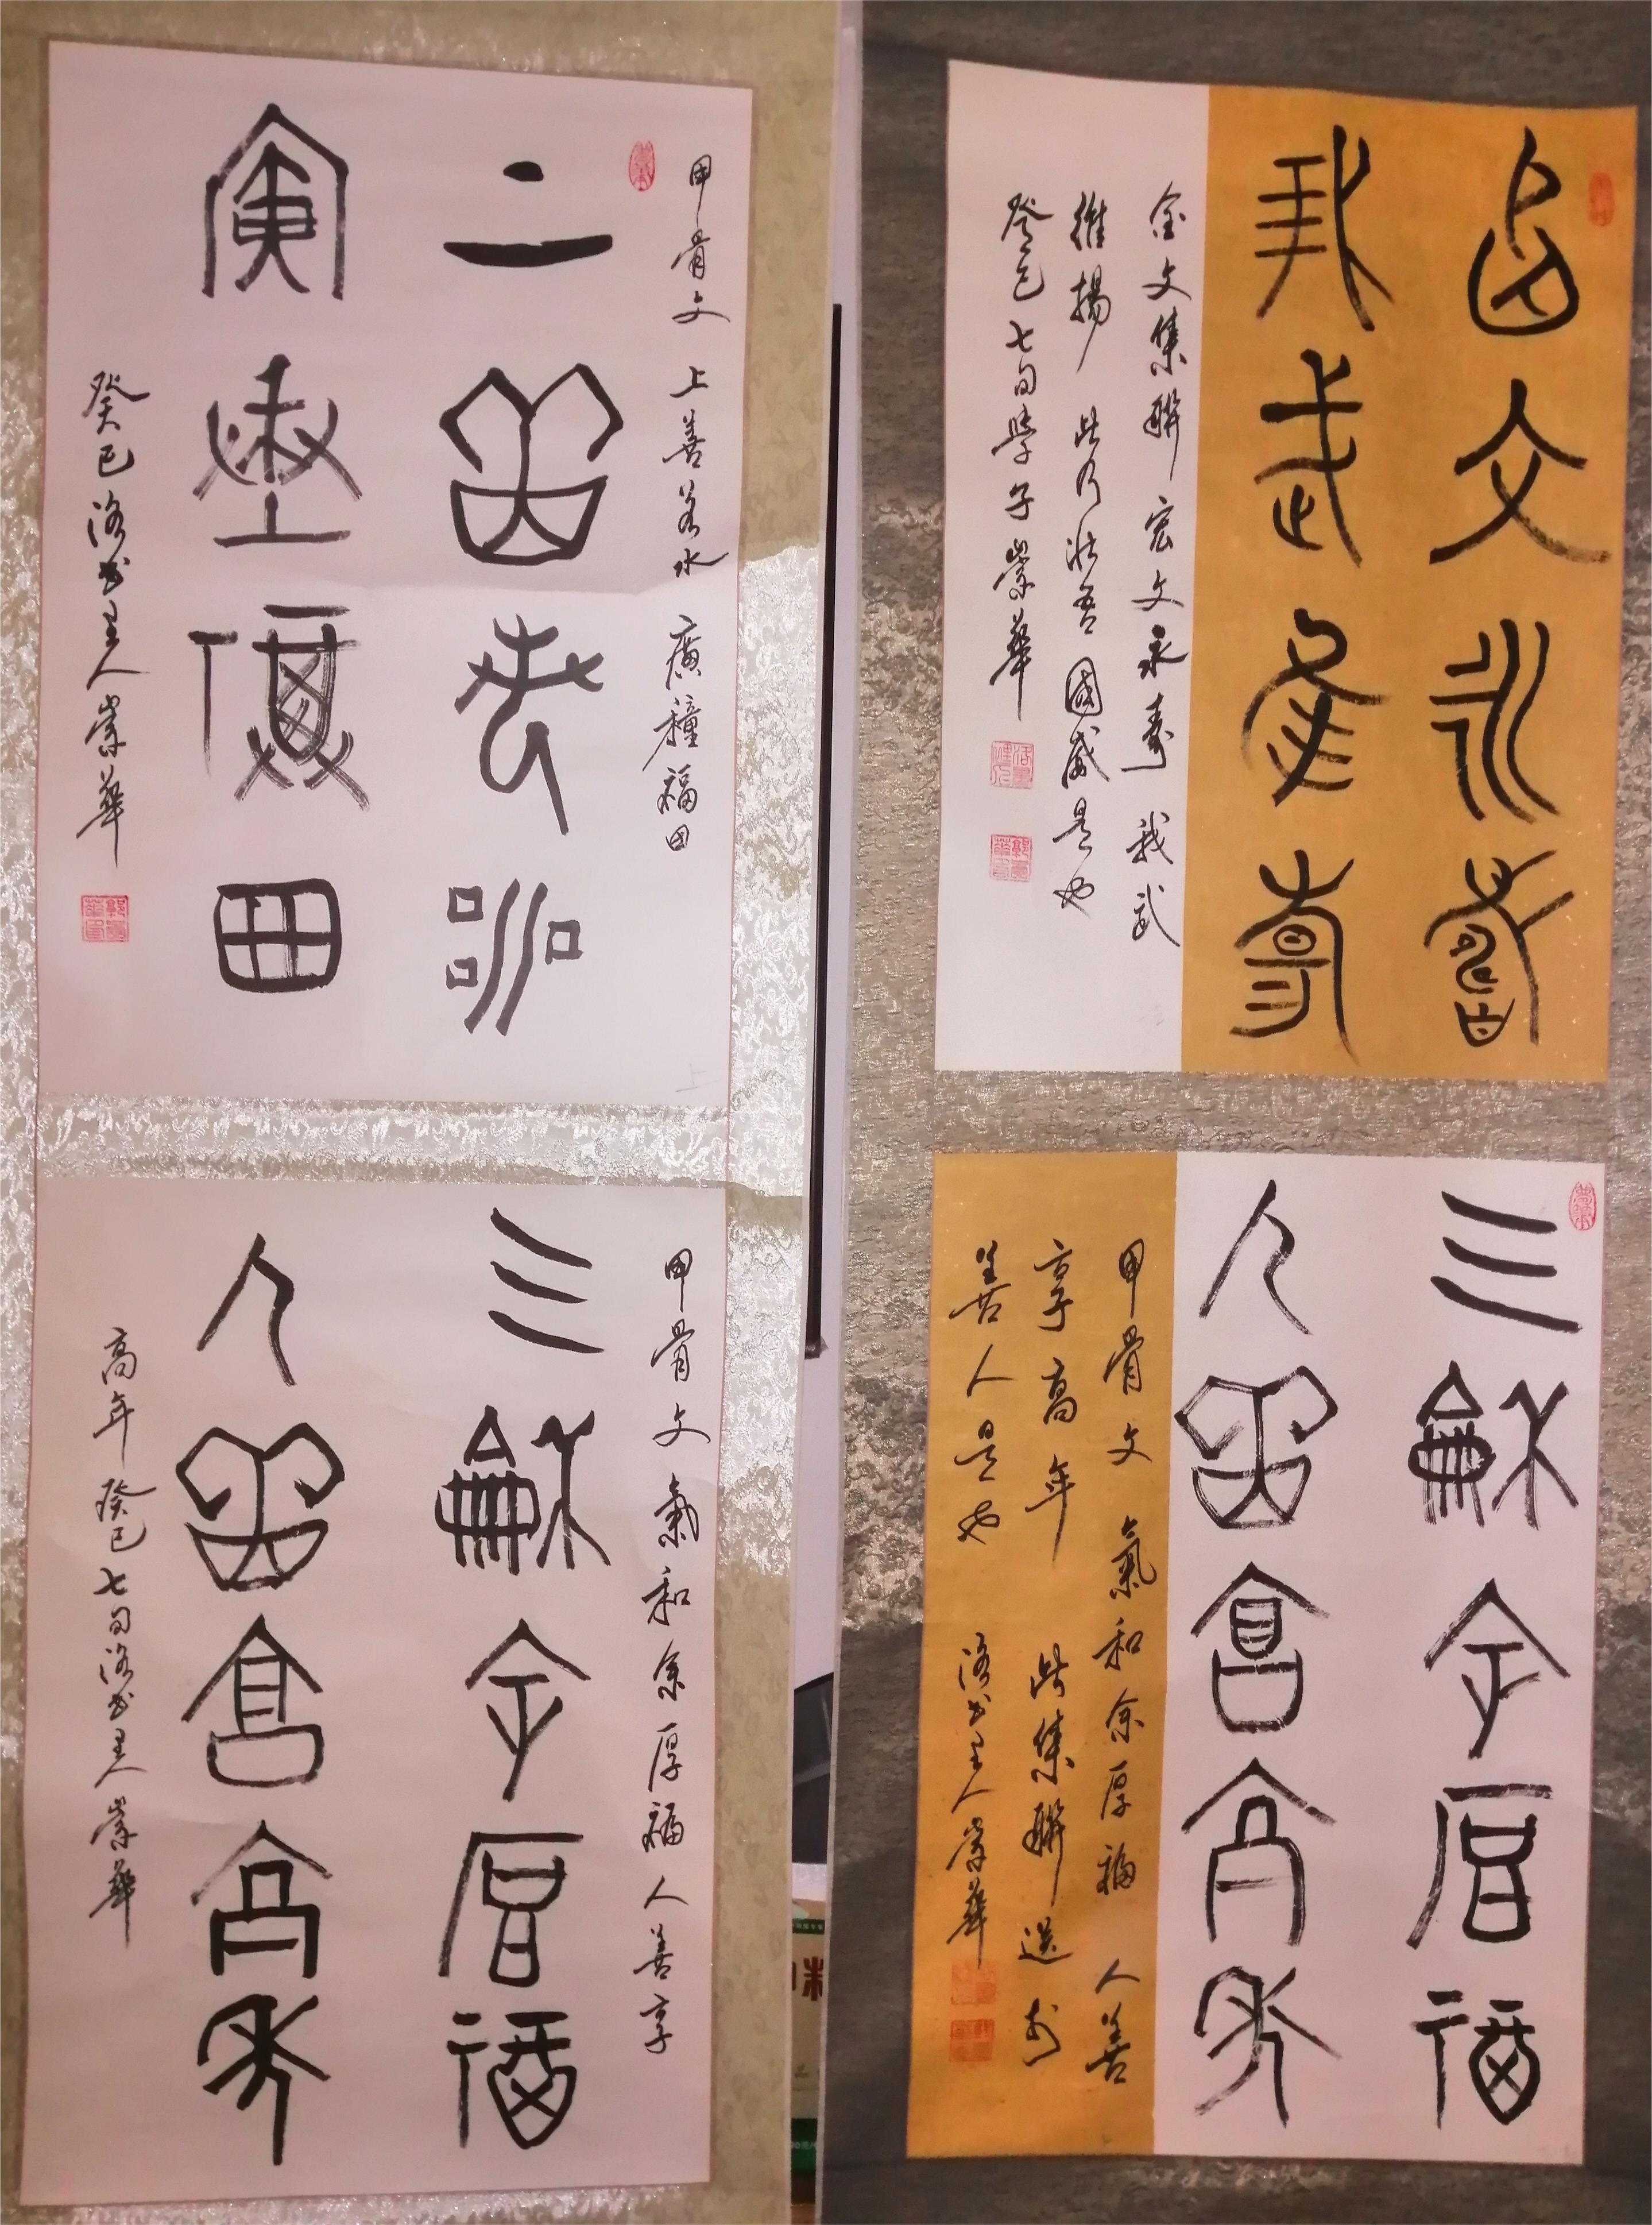 甲骨文 上善若水 廣種福田
上善若水
廣種福田
癸巳洛書主人崇華
金文集聯 宏文永壽 我武
維揚 此乃壯吾國威是也
癸巳七旬學子崇華
宏文永壽
我武維揚
甲骨文氣和余厚福人善享
氣和余厚福
人善享高年
高年 癸巳七旬洛書主人崇華
氣和余厚福
人善享高年
甲骨文 氣和余厚福 人善
享高年 此集聯送於
善人是也 洛書主人崇華